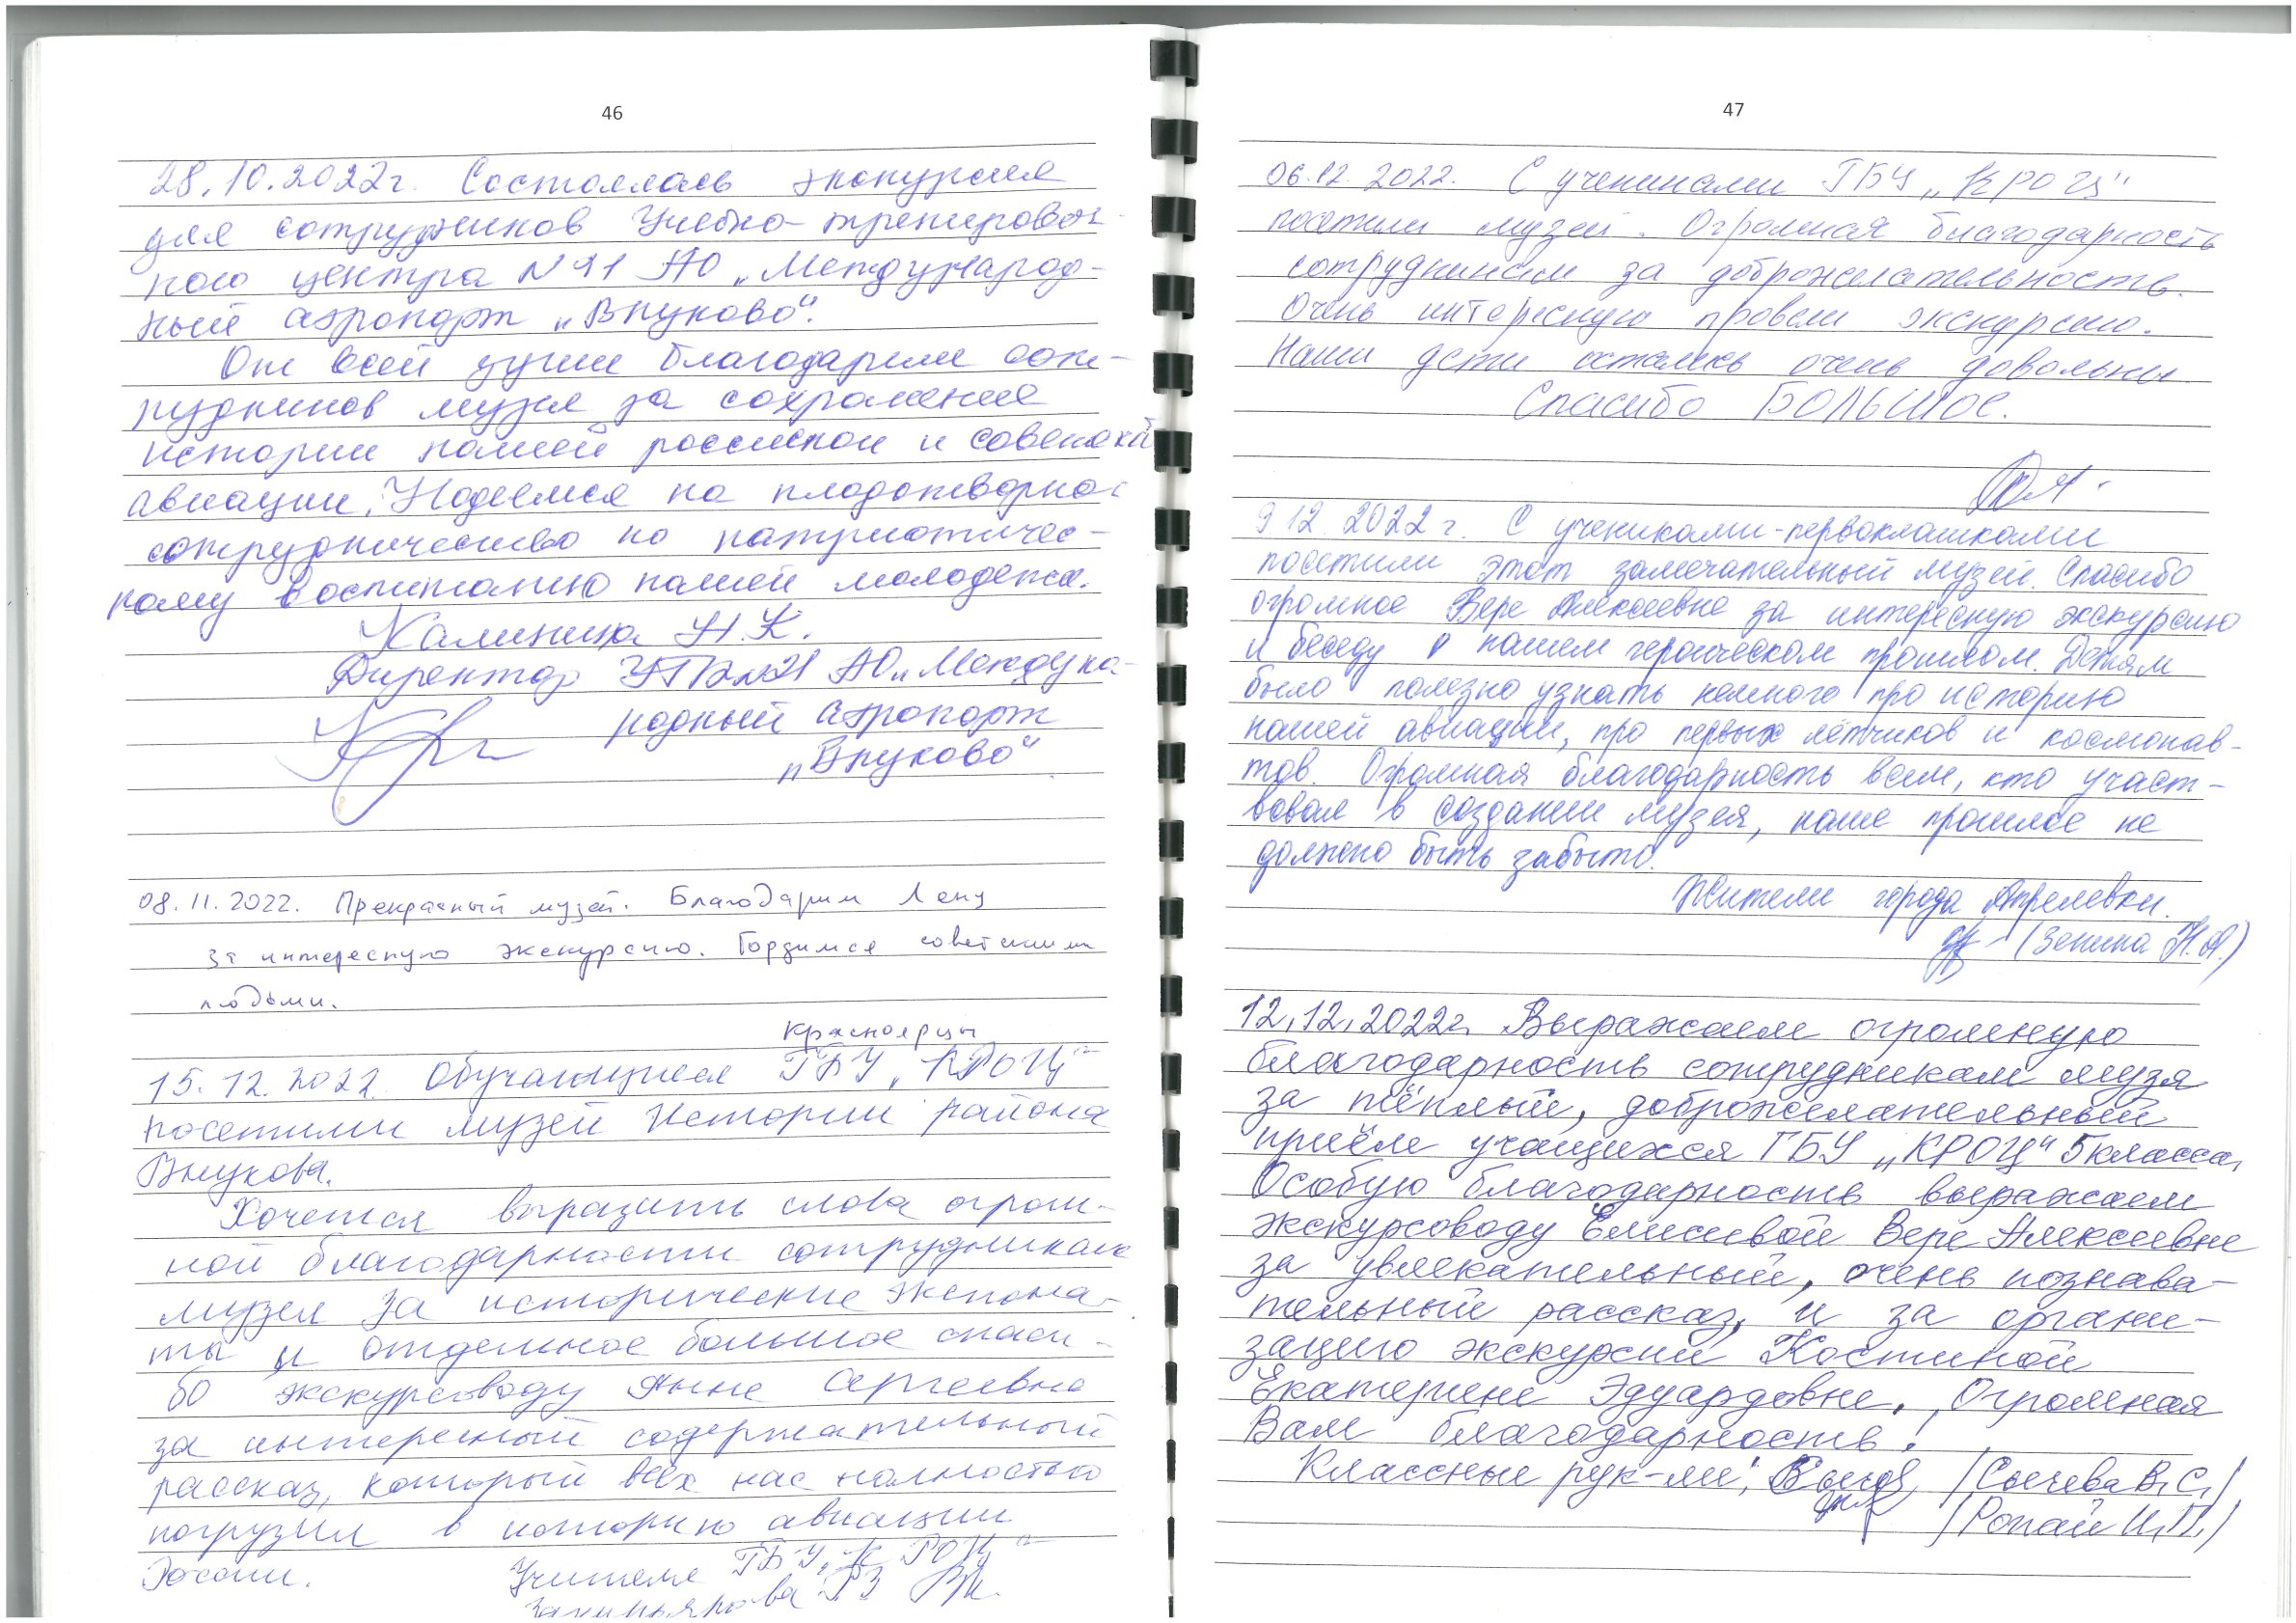 46
28.10.2022г. Состоялась экскурсия
для сотрудников Учебно-тренировоч-
ного центра №21 АО „Международ-
ный аэропорт „Внуково“.
От всей души благодарим сот-
рудников музея за сохранение
истории нашей российской и советской
авиации. Надеемся на плодотворное
сотрудничество по патриотичес-
кому воспитанию нашей молодежи.
Калинина Н.К.
Директор АО „Междуна-
родный аэропорт
„Внуково“
08.11.2022. Прекрасный музей. Благодарим Лену
за интересную экскурсию. Гордимся советскими
людьми.
Красноярцы
15.12.2022 Обучающиеся ГБУ „КРОЦ“
посетили музей Истории района
Внукова.
Хочется выразить слова огром-
ной благодарности сотрудникам
музея за исторические экспона-
ты и отдельное большое спаси-
бо экскурсоводу Анне Сергеевне
за интересный содержательный
рассказ, который всех нас полностью
погрузил в историю авиации
России.
Учителя ГБУ „КРОЦ“
47
06.12.2022. С учениками ГБУ „КРОЦ“
посетили музей. Огромная благодарность
сотрудникам за доброжелательность.
Очень интересную провели экскурсию.
Наши дети остались очень довольны
Спасибо БОЛЬШОЕ.
9 12 2022 г. С учениками-первоклашками
посетили этот замечательный музей. Спасибо
огромное Вере Алексеевне за интересную экскурсию
и беседу о нашем героическом прошлом. Детям
было полезно узнать немного про историю
нашей авиации, про первых лётчиков и космонав-
тов. Огромная благодарность всем, кто участ-
вовал в создании музея, наше прошлое не
должно быть забыто.
Жители города Апрелевки.
(Зенина Н.А.)
12.12.2022г. Выражаем огромную
благодарность сотрудникам музя
за тёплый, доброжелательный
приём учащихся ГБУ „КРОЦ“ 5 класса.
Особую благодарность выражаем
экскурсоводу Елисеевой Вере Алексеевне
за увлекательный, очень познава-
тельный рассказ, и за органи-
зацию экскурсии Костиной
Екатерине Эдуардовне. Огромная
Вам благодарность!
Классные рук-ли: /Сычева В.С./
/Ропай И.П./